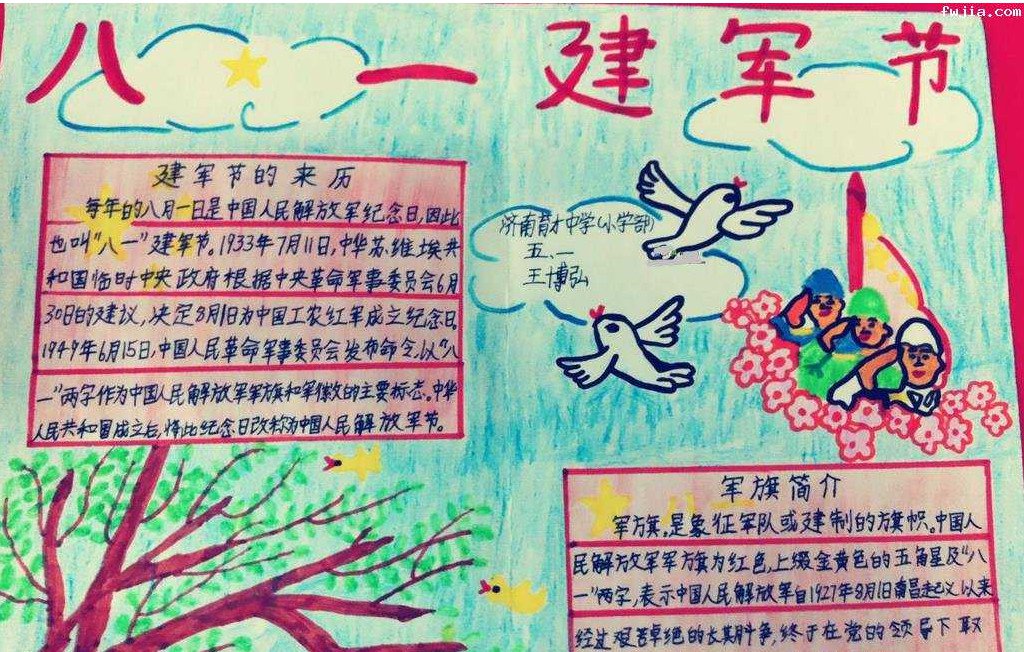 fwjia.com
八一建军节
建军节的来历
每年的八月一日是中国人民解放军纪念日,因此
也叫"八一"建军节。1933年7月11日,中华苏维埃共
和国临时中央政府根据中央革命军事委员会6月
30日的建议,决定8月1日为中国工农红军成立纪念日。
1949年6月15日,中国人民革命军事委员会发布命令,以"八
一"两字作为中国人民解放军军旗和军徽的主要标志。中华
人民共和国成立后,将此纪念日改称为中国人民解放军节。
济南育才中学(小学部)
五、一
王博弘
军旗简介
军旗,是象征军队或建制的旗帜。中国人
民解放军军旗为红色,上缀金黄色的五角星及"八
一"两字,表示中国人民解放军自1927年8月1日南昌起义以来
经过艰苦卓绝的长期斗争,终于在党的领导下取